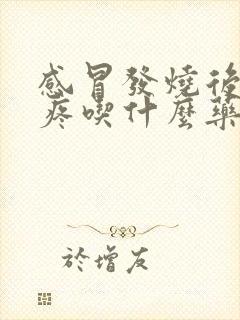 感冒發燒後
疼喫什麼藥
於增友